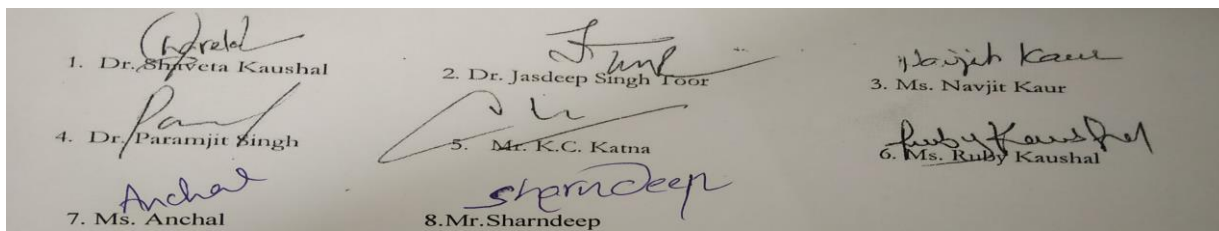 1. Dr. Shaveta Kaushal
2. Dr. Jasdeep Singh Toor
Navjit Kaur
3. Ms. Navjit Kaur
4. Dr. Paramjit Singh
5. Mr. K.C. Katna
Ruby Kaushal
6. Ms. Ruby Kaushal
Anchal
7. Ms. Anchal
Sharndeep
8.Mr.Sharndeep